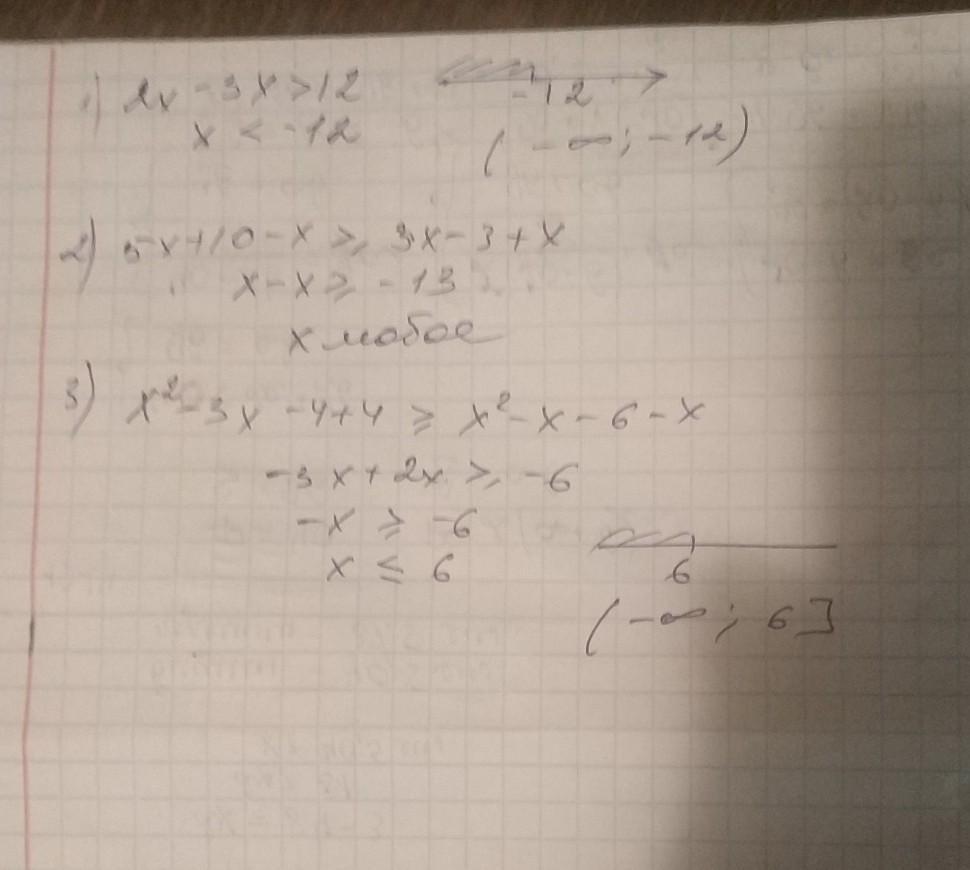 1) 2x - 3x > 12
x < -12
-12
(-∞; -12)
2) 5x+10-x ≥ 3x-3+x
x-x ≥ -13
x любое
3) x²-3x-4+4 ≥ x²-x-6-x
-3x+2x ≥ -6
-x ≥ -6
x ≤ 6
6
(-∞; 6]